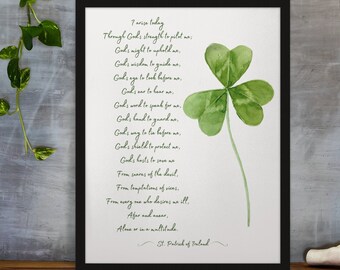 I arise today
Through God's strength to pilot me;
God's might to uphold me,
God's wisdom to guide me,
God's eye to look before me,
God's ear to hear me,
God's word to speak for me,
God's hand to guard me,
God's way to lie before me,
God's shield to protect me,
God's hosts to save me
From snares of the devil,
From temptations of vices,
From every one who desires me ill,
Afar and anear,
Alone or in a multitude.
St. Patrick of Ireland